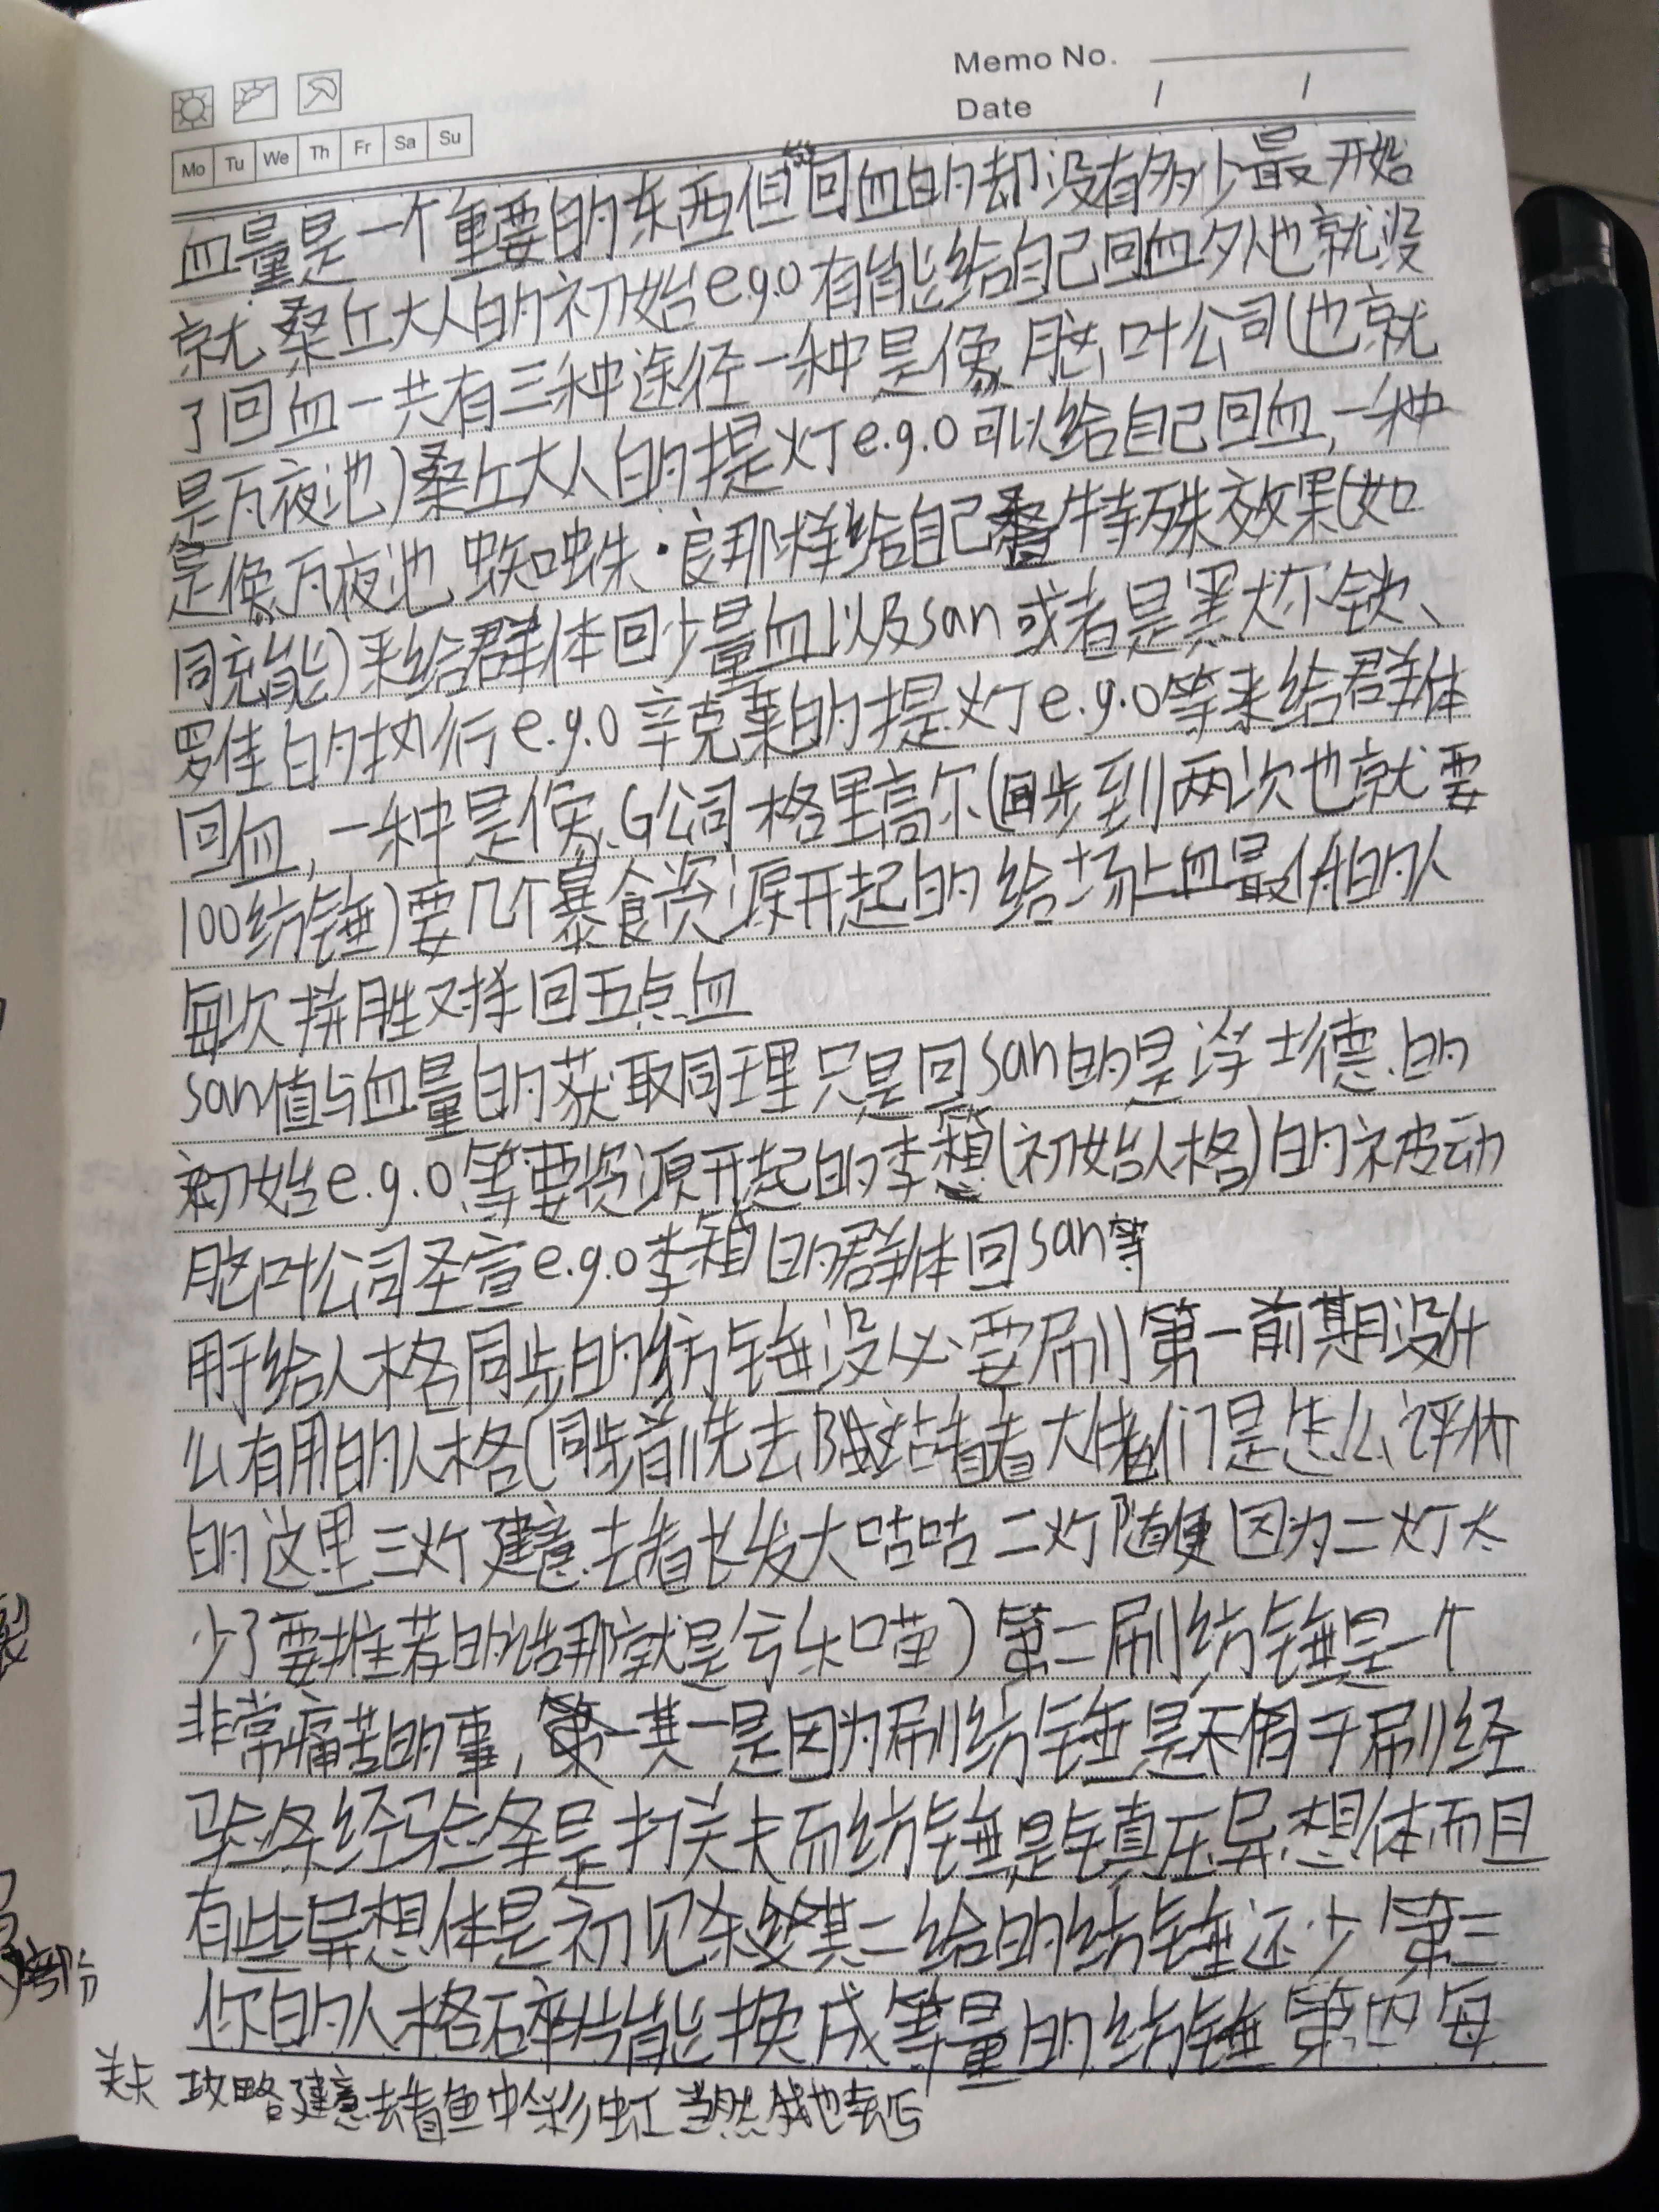 Memo No.
Date / /
Mo Tu We Th Fr Sa Su
血量是一个重要的东西但回血的却没有多少最开始
就桑丘大人的初始e.g.o有能给自己回血外也就没
了回血一共有三种途径一种是像脑叶公司(也就
是瓦夜池)桑丘大人的提灯e.g.o可以给自己回血,一种
是像瓦夜池蜘蛛·良那样给自己叠特殊效果(如
同充能)来给群体回少量血以及san或者是黑犬不缺、
罗佳的执行e.g.o辛克莱的提灯e.g.o等来给群体
回血,一种是像G公司格里高尔(同步到两次也就要
100纺锤)要几个暴食资源开起的给场上血最低的人
每次拼胜又择回五点血
san值与血量的获取同理只是回san的是浮士德的
初始e.g.o等要资源开起的李想(初始人格)的被动
脑叶公司圣宣e.g.o李箱的群体回san等
用于给人格同步的纺锤没必要刷第一前期没什
么有用的人格(同步前先去B站看看大佬们是怎么评价
的这里三灯建意去看长发大咕咕二灯随便因为二灯太
少了要推荐的话那就是亏乐口苗)第二刷纺锤是一个
非常痛苦的事,其一是因为刷纺锤是不同于刷经
验条经验条是打关卡而纺锤是镇压异想体而且
有些异想体是初见杀其二给的纺锤还少第三
你的人格碎片能换成等量的纺锤第四每
关卡攻略建意去看鱼中彩虹当然我也去写